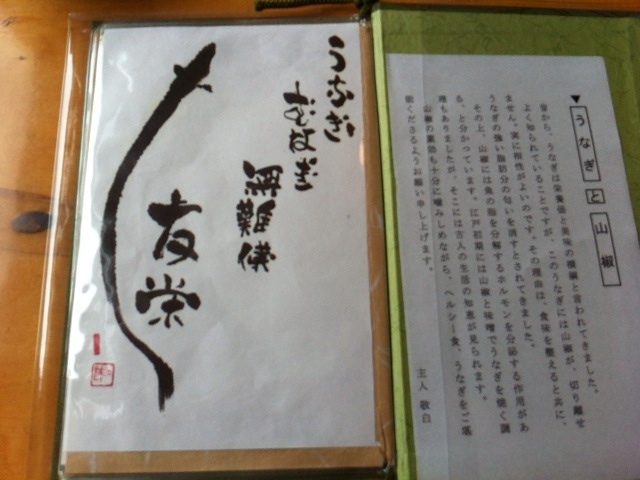 うなぎ
むなぎ
無難
友栄
▼うなぎと山椒
昔から、うなぎは栄養価と美味の横綱と言われてきました。
よく知られていることですが、このうなぎには山椒が、切り離せ
ません。実に相性がよいのです。その理由は、食味を整えると共に、
うなぎの強い脂肪分の匂いを消すとされてきました。
その上、山椒には魚の脂を分解するホルモンを分泌する作用があ
る、と分かっています。江戸初期には山椒と味噌でうなぎを焼く調
理もありましたが、そこには古人の生活の知恵が見られます。
山椒の薬効も十分に噛みしめながら、ヘルシー食、うなぎをご堪
能くださるようお願い申し上げます。
主人 敬白